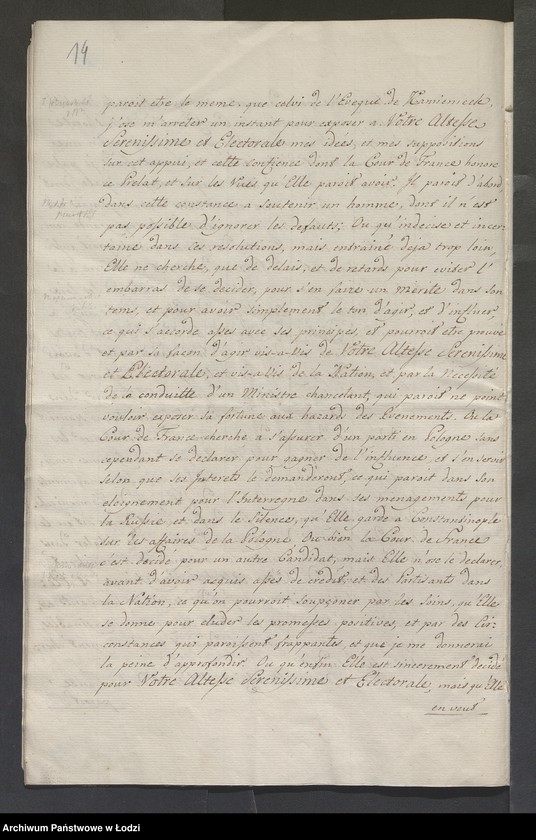 14
paroit etre le meme, que celvi de l'Eveque de Kaminieck,
j'ose m'arreter un instant pour exposer a Vôtre Altesse
Serenissime et Electorale mes idées, et mes suppositions
sur cet appui, et cette confience dont la Cour de France honore
ce Prelat, et sur les Vües qu'Elle paroit avoir. Il paroit d'abord
dans cette constance a soutenir un homme, dont il n'est
pas possible d'ignorer les defauts; Ou qu'indecise et incer-
taine dans ces resolutions, mais entrainé deja trop loin,
Elle ne cherche, que de delais, et de retards pour eviser l'
embarras de se decider, pour s'en faire un merite dans son
tems, et pour avoir simplement le ton d'agir, et d'influer,
ce qui s'acorde asses avec ses principes, et pourroit etre prouvé
et par sa façon d'agir vis-a-vis de Vôtre Altesse Serenissime
et Electorale, et vis-a-vis de la Nation, et par la necessité
de la conduitte d'un Ministre chancelant, qui paroit ne point
vouloir exposer sa fortune aux hazards des Evenements. Ou la
Cour de France cherche a s'assurer d'un parti en Pologne sans
cependant se declarer pour gagner de l'influence, et s'en servir
selon que ses Interets le demanderont, ce qui parait dans son
eloignement pour l'Interregne dans ses menagements pour
la Russie et dans le Silence, qu'Elle garde a Constantinople
sur les affaires de la Pologne Ou bien la Cour de France
s'est decidé pour un autre Candidat, mais Elle n'ose le declarer,
avant d'avoir acquis asses de credit, et des Partisants dans
la Nation, ce qu'on pourroit soupçoner par les soins, qu'Elle
se donne pour eluder les promesses positives, et par des Cir-
constances qui paroissent frappantes, et que je me donnerai
la peine d'approfondir. Ou qu'enfin Elle est sincerement decidé
pour Vôtre Altesse Serenissime et Electorale, mais qu'Elle
en veut
Archiwum Państwowe w Łodzi